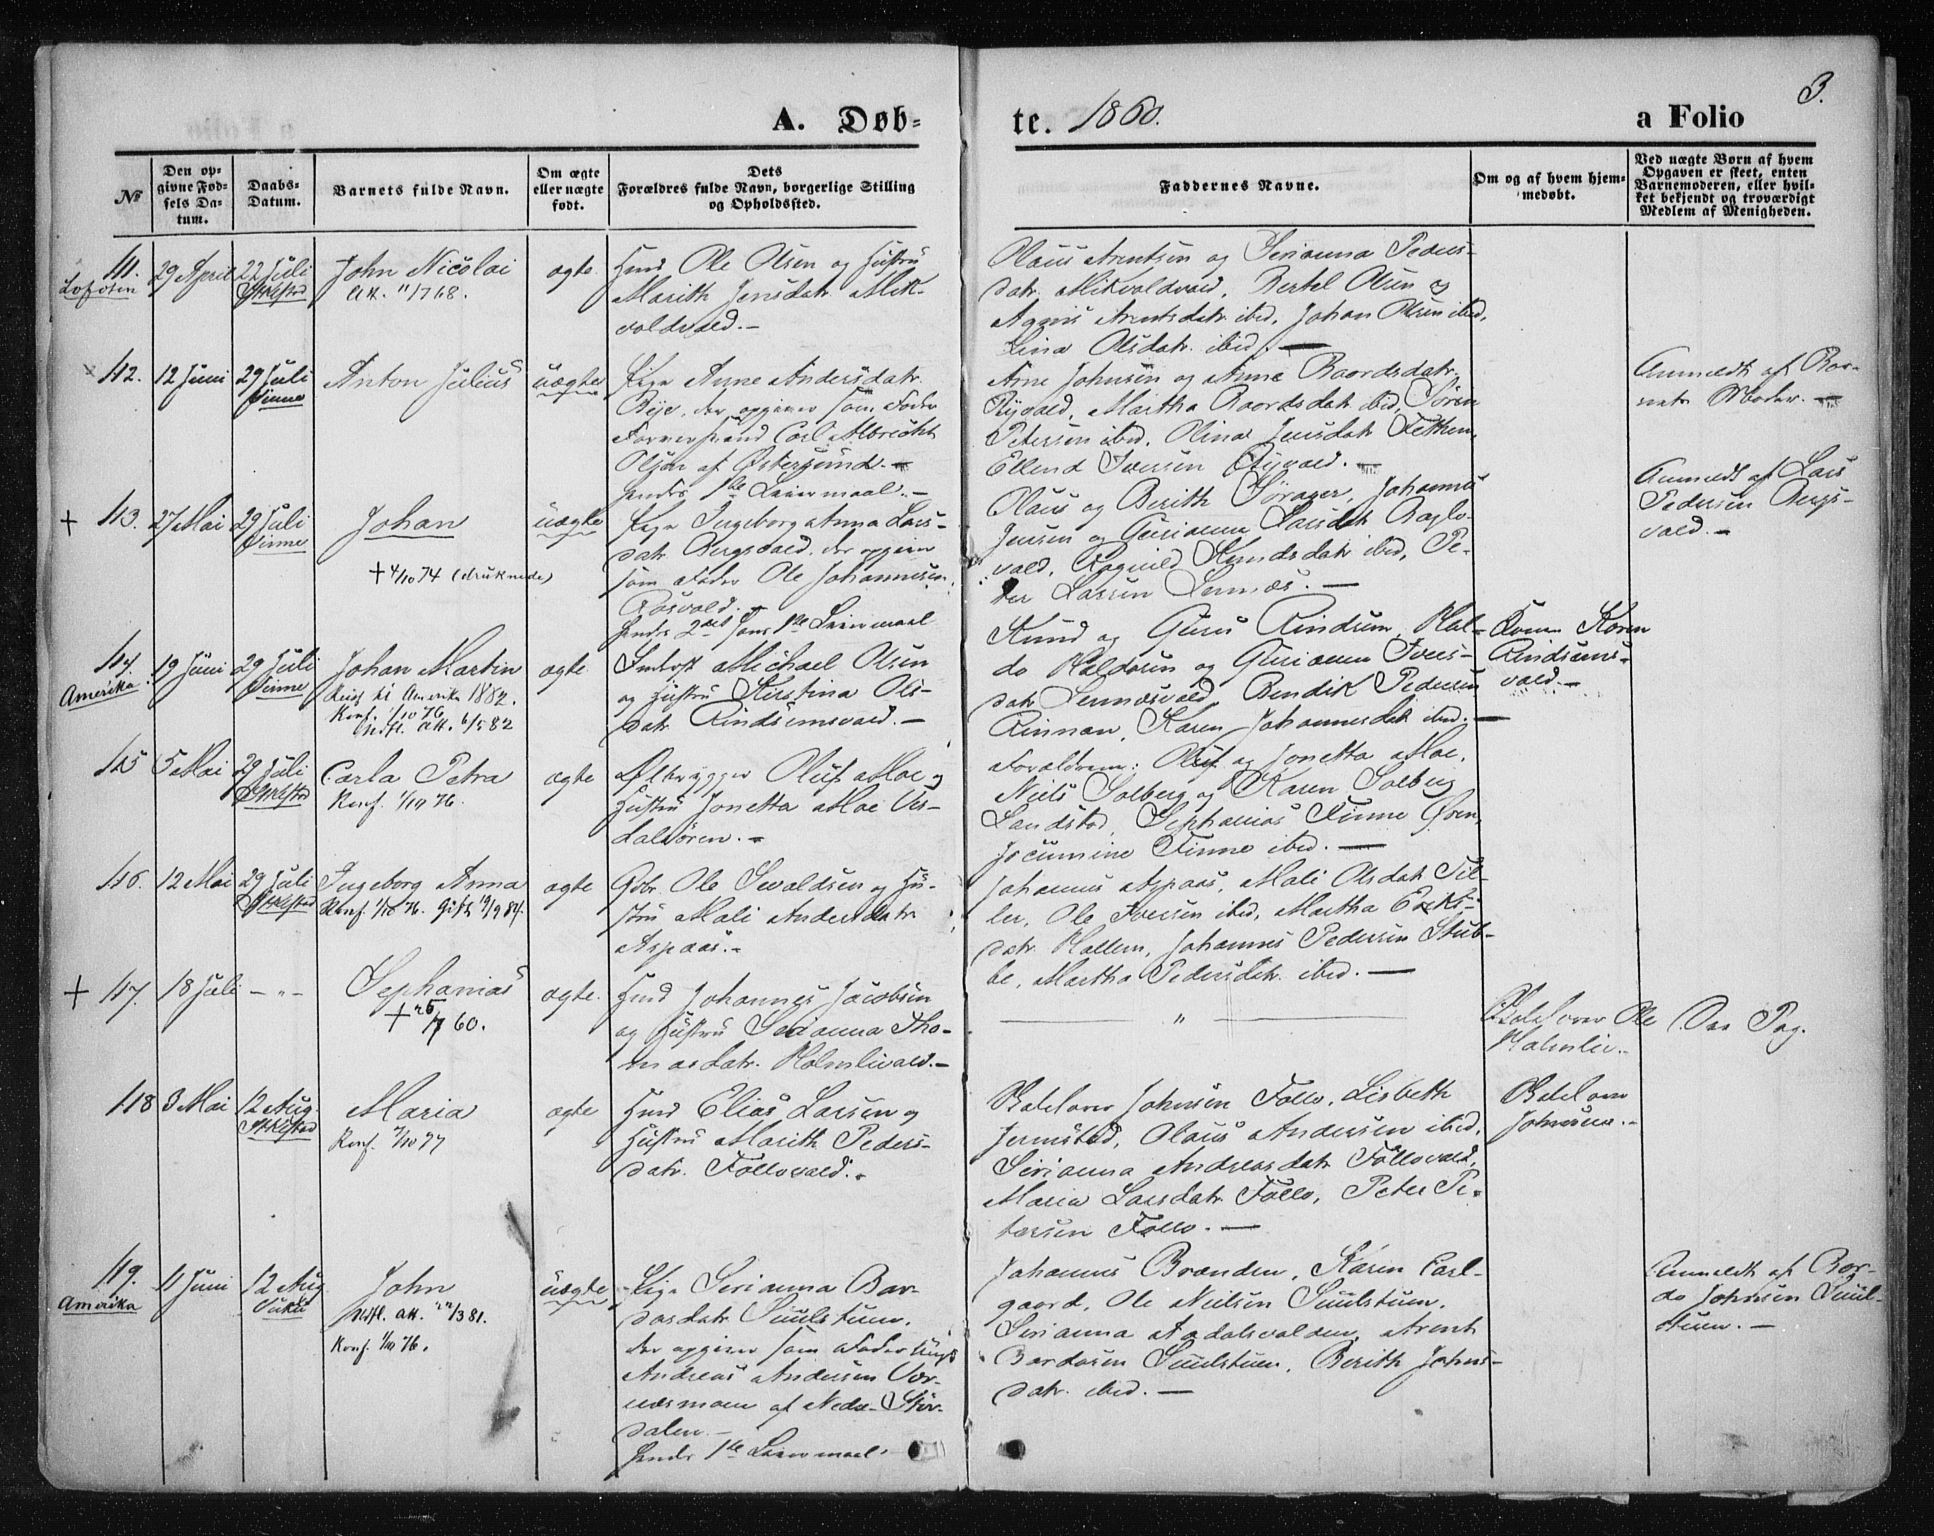 3.
A. Døb-
te. 1860.
a Folio
№
Den op-
givne Fød-
sels Da-
tum.
Daabs-
Datum.
Barnets fulde Navn.
Om ægte
eller uægte
født.
Dets
Forældres fulde Navn, borgerlige Stilling
og Opholdssted.
Faddernes Navne.
Om og af hvem hjem-
medøbt.
Ved uægte Børn af hvem
Opgaven er skeet, enten
Barnemoderen, eller hvil-
ket bekjendt og troværdigt
Medlem af Menigheden.
41.
Lofoten
29 April
22 Juli
Stiklestad
John Nicolai
Att. 11/7 68.
ægte
Huusmd Ole Olsen og Hustru
Marith Jensdatr. Mik-
voldvald.-
Olaus Arentsen og Serianna Peders-
datr. Mikvoldvald, Bertel Olsen og
Agnes Arentsdatr. ibid, Johan Olsen ibid,
Lina Olsdatr. ibid. —
42.
12 Juni
29 Juli
Vinne
Anton Julius
uægte
Pige Anne Andersdatr.
Bye, der opgiver som Fader
Carl Albrecht
Olsen af Østersund.-
hendes 1ste Leiermaal.-
Arne Johnsen og Anne Baardsdatr.
Ryvald, Martha Baardsdatr. ibid, Sören
Petersen ibid, Olina Jensdatr.
Ellend Iversen Ryvald. -
Anmeldt af Bar-
nets Moder. -
+ 43.
27 Mai
29 Juli
Vinne
Johan
+ 4/10 74 (druknede)
uægte
Pige Ingeborg Anna Lars-
datr. Bergsvald, der opgiver
som Fader Ole Johannesen
Rosvold.-
hendes 2det hans 1ste Leiermaal
Olaus og Berith Sörager, Johannes
Jensen og Gurianna Larsdatr. Baglo-
vald, Ragnild Knudsdatr. ibid, Pe-
der Larsen Lennæs. —
Anmeldt af Lars
Pedersen Bergs-
vald. -
44.
Amerika
19 Juni
29 Juli
Vinne
Johan Martin
Reist til Amerika 1882.
Konf. 1/10 76
Utfl. att. 6/5 82
ægte
Michael Olsen
og Hustru Kirstina Ols-
datr. Rindsemsvald.-
Knud og Guru Rindsem, Hal-
do Haldosen og Gurianna Ivers-
datr. Lennæsvald, Bendik Pedersen
Rinnan, Karen Johannesdatr. ibid. —
Kone Karen
Rindsems-
vald.-
45
5 Mai
29 Juli
Stiklestad
Carla Petra
Konf. 1/10 76.
ægte
Ølbrygger Oluf Moe og
Hustru Jonetta Moe Ver-
dalsören. -
Forældrene: Oluf og Jonetta Moe,
Niels Solberg og Karen Solberg
Landstad, Sephanias Finne Øren,
Jocumine Finne ibid. —
46.
12 Mai
29 Juli
Stiklestad
Ingeborg Anna
Konf. 1/10 76. Gift 19/9 84.
ægte
Gdbr. Ole Sevaldsen og Hu-
stru Mali Andersdatr.
Aspaas.-
Johannes Aspaas, Mali Olsdatr. Til-
ler, Ole Iversen ibid, Martha Eriks-
datr. Hallem, Johannes Pedersen Stub-
be, Martha Pedersdatr. ibid. —
+ 47.
18 Juli
- " -
Sephanias
+ 25/7 60.
ægte.
Huusmd Johannes Jacobsen
og Hustru Serianna Tho-
masdatr. Holmlivald.-
— " —
Ole
Holmlie.-
Das Pag.
48
3 Mai
12 Aug.
Stiklestad
Maria
Konf. 7/10 77
ægte
Huusmd Elias Larsen og
Hustru Marith Peders-
datr. Follovald.-
Johnsen Follo, Lisbeth
Jermstad, Olaus Andersen ibid,
Serianna Andreasdatr. Follovald,
Maria Larsdatr. Follo, Peter Pe-
tersen Follo. —
Johnsen.-
49.
Amerika
11 Juni
12 Aug
Vuku
John
Utfl. att. 22/3 81.
Konf. 1/10 76.
uægte
Pige Serianna Bar-
dosdatr. Suulstuen,
der opgiver som Fader Ungk
Andreas Andersen Vor-
næsmoen af Nedre Stör-
dalen.-
hendes 1ste Leiermaal.
Johannes Brænden, Karen Carl-
gaard, Ole Neilsen Suulstuen,
Serianna Aadalsvolden, Arent
Bardosen Suulstuen, Berith Johns-
datr. ibid. —
Anmeldt af Bar-
do Johnsen Suul-
stuen. —